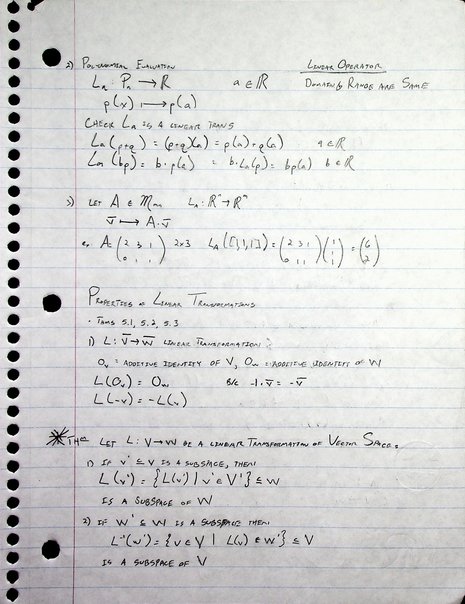 2) Polynomial Evaluation
Linear Operator
La : Pn → ℝ a ∈ ℝ Domain & Range are Same
p(x) ↦ p(a)
Check La is a linear trans
La(p+q) = (p+q)(a) = p(a)+q(a) a ∈ ℝ
La(bp) = b·p(a) = b·La(p) = bp(a) b ∈ ℝ
3) Let A ∈ Mmn LA: ℝⁿ → ℝᵐ
v̄ ↦ A·v̄
ex. A = (2 3 1 2x3 LA([1,1,1]) = (2 3 1)(1 = (6
0 1 1) 0 1 1 1 1) 2)
Properties of Linear Transformations
· Thms 5.1, 5.2, 5.3
1) L: V → W linear transformation:
0v = additive identity of V, 0w = additive identity of W
L(0v) = 0w b/c -1·v̄ = -v̄
L(-v) = -L(v)
Thm Let L: V→W be a linear transformation of Vector Spaces
1) If V' ⊆ V is a subspace, then
L(V') = {L(v) | v ∈ V'} ⊆ W
is a subspace of W
2) If W' ⊆ W is a subspace then
L⁻¹(W') = {v ∈ V | L(v) ∈ W'} ⊆ V
is a subspace of V